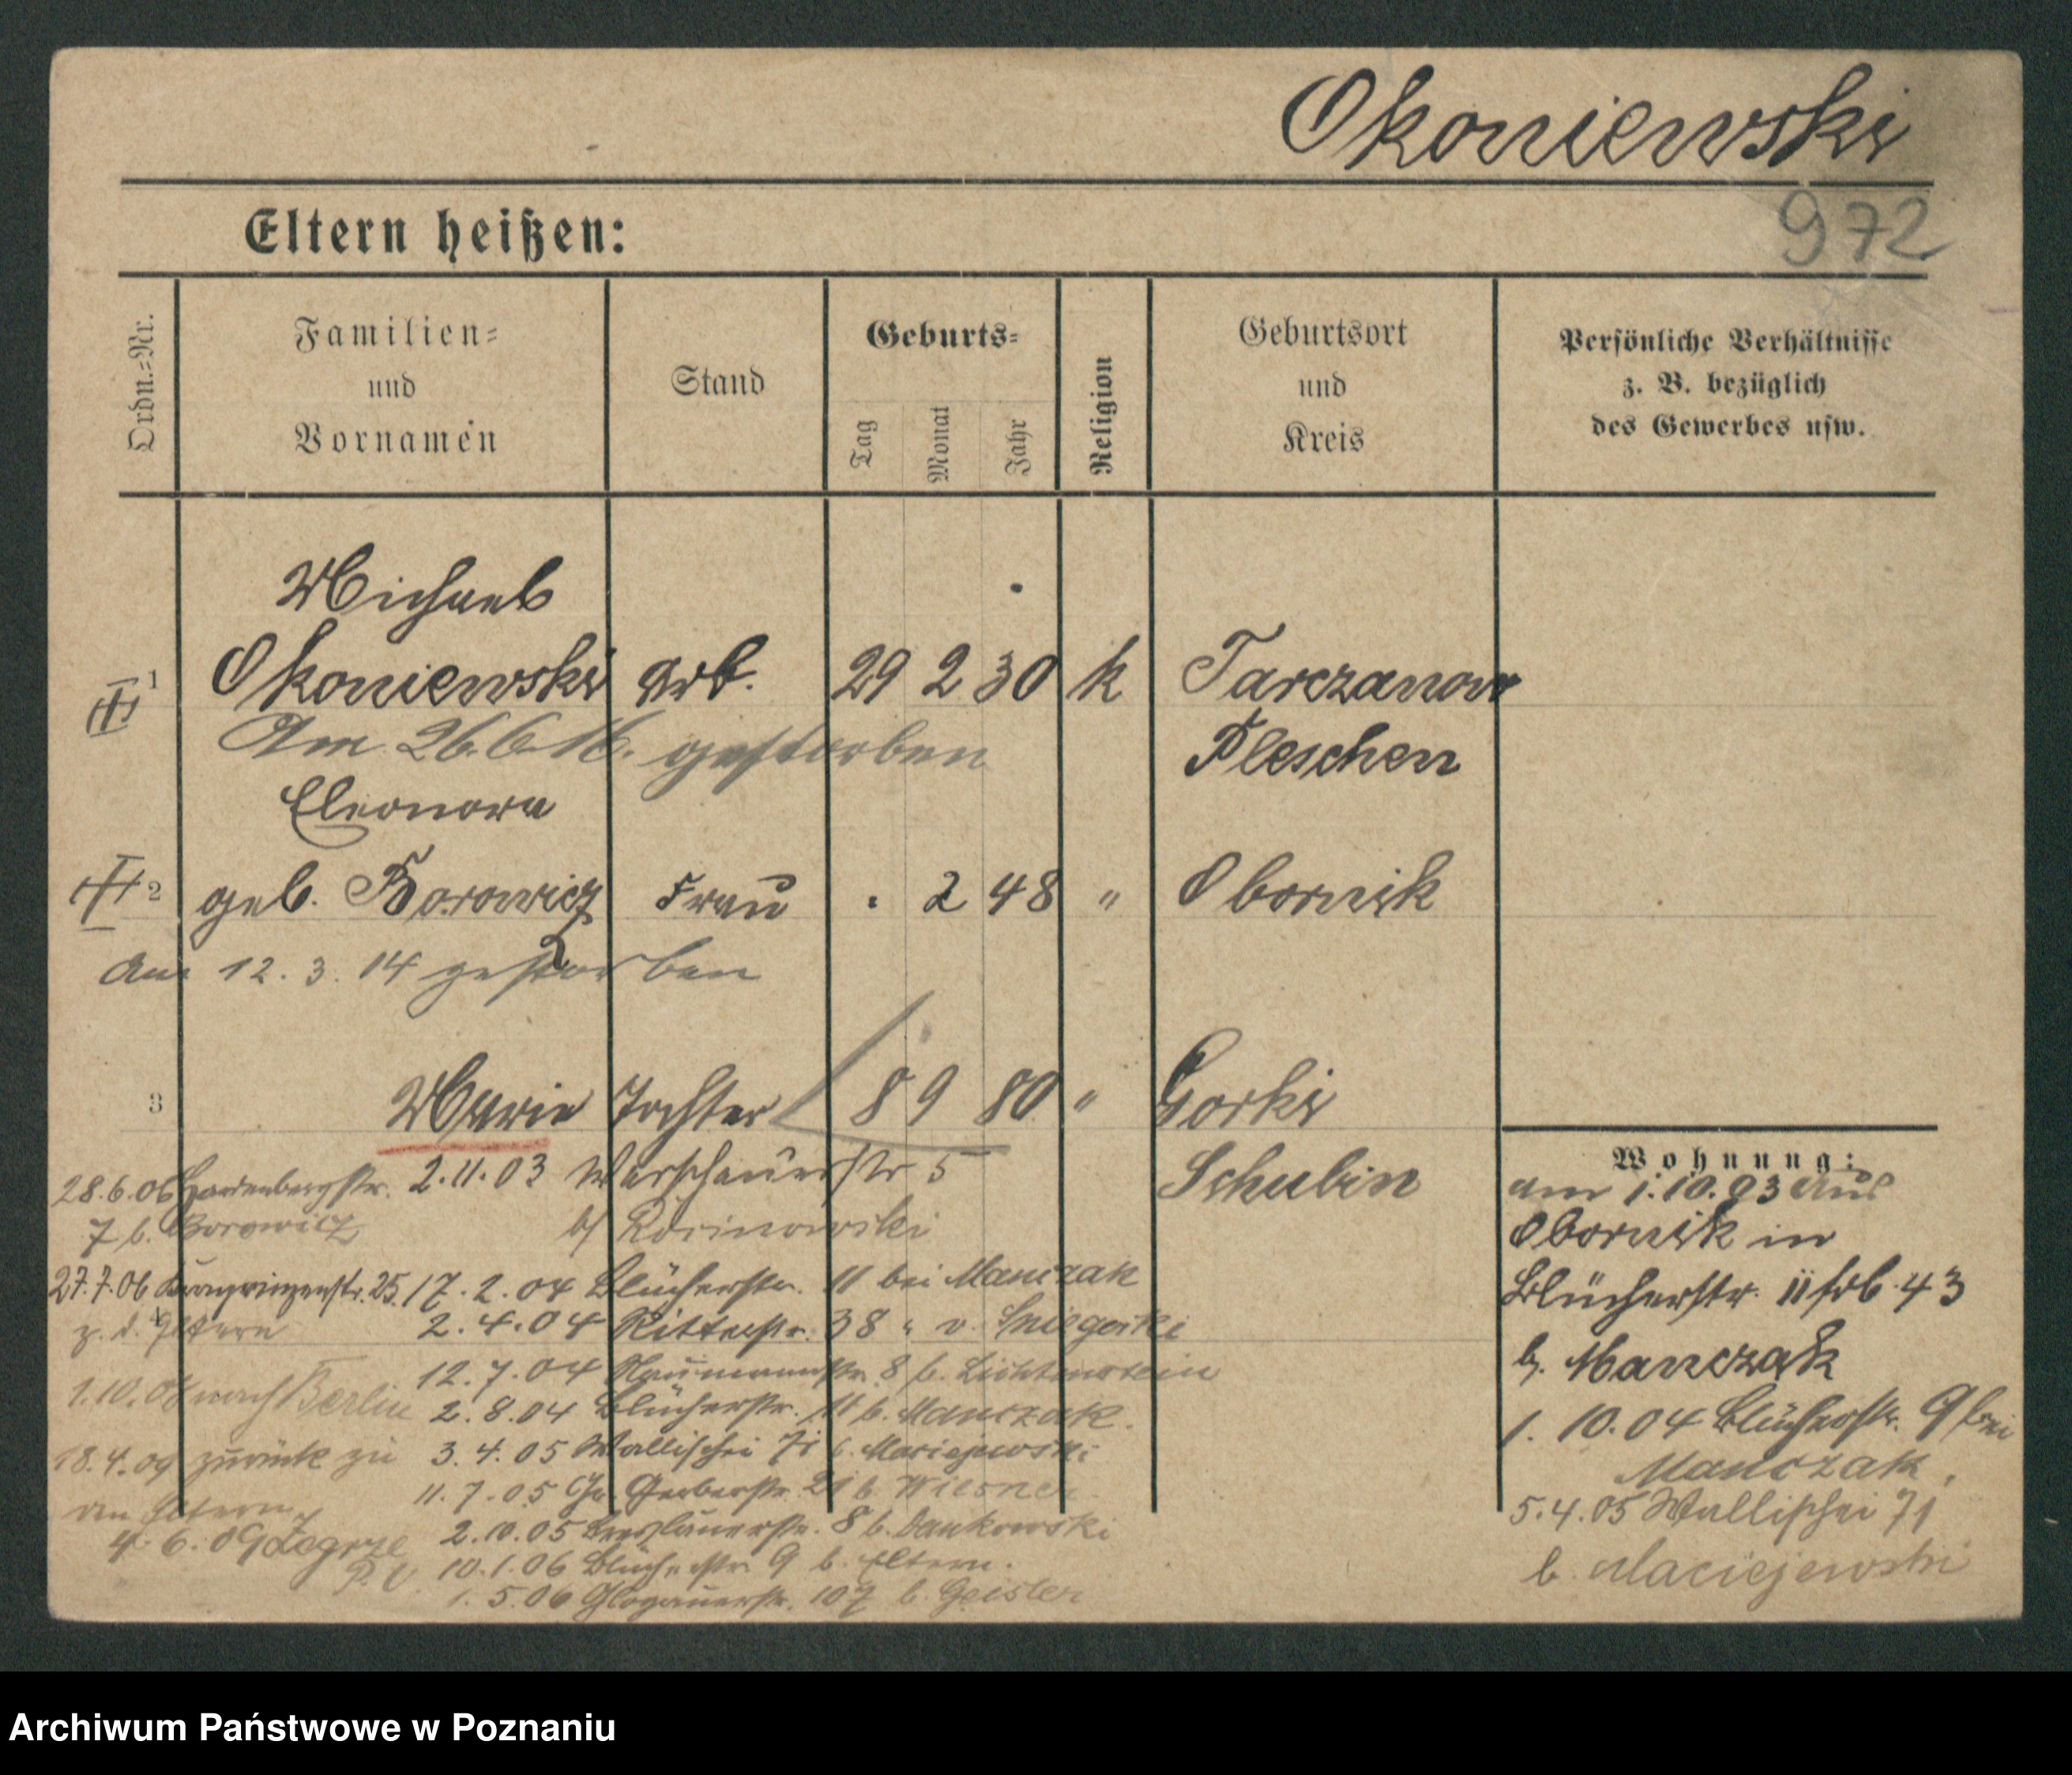 Okoniewski
972
Eltern heißen:
Ordn.-Nr.
Familien-
und
Vornamen
Stand
Geburts-
Tag
Monat
Jahr
Religion
Geburtsort
und
Kreis
Persönliche Verhältnisse
z. B. bezüglich
des Gewerbes usw.
Michael
1 Okoniewski Arb. 29 2 30 k Tarczanow
Am 26.6.16. gestorben Pleschen
Eleonora
2 geb. Borowicz Frau . 2 48 " Obornik
Am 12. 3. 14 gestorben
3 Marie Tochter 8 9 80 " Gorki
Schubin
2.11.03 Warschauerstr 5
b/
17.2.04 Blücherstr. 11 bei Manczak
2.4.04 Ritterstr. 38 " v.
12.7.04 Naumannstr. 8 b. Lichtenstein
2.8.04 Blücherstr. 11 b. Manczak.
3.4.05 Wallischei 71 b. Maciejewski
11.7.05 Gr. Gerberstr. 21 b. Wiesner
2.10.05 Breslauerstr. 8 b. Dankowski
10.1.06 Blücherstr. 9 b. Eltern.
1.5.06 Glogauerstr. 107 b. Geisler
28.6.06 Hardenbergstr.
7 b. Borowicz
27.7.06 Kronprinzenstr. 25
z. d. Eltern
1.10. nach Berlin
18.4.09 zurück zu
den Eltern
4.6.09 Zegrze
Wohnung:
am 1.10.03 aus
Obornik in
Blücherstr. 11 43
b. Manczak
1. 10.04 Blücherstr. 9 bei
Manczak.
5.4.05 Wallischei 71
b. Maciejewski
Archiwum Państwowe w Poznaniu